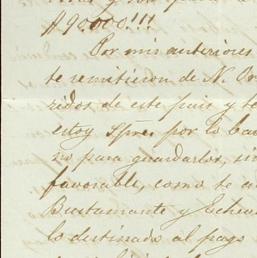 $90.000!!!
Por mis anteriores
te remitieron de N. Or
ridos de este pais y te
estoy Spre. por lo ba
no para guardarlos, si
favorable, como te
Bustamante y Echev
lo destinado al pago